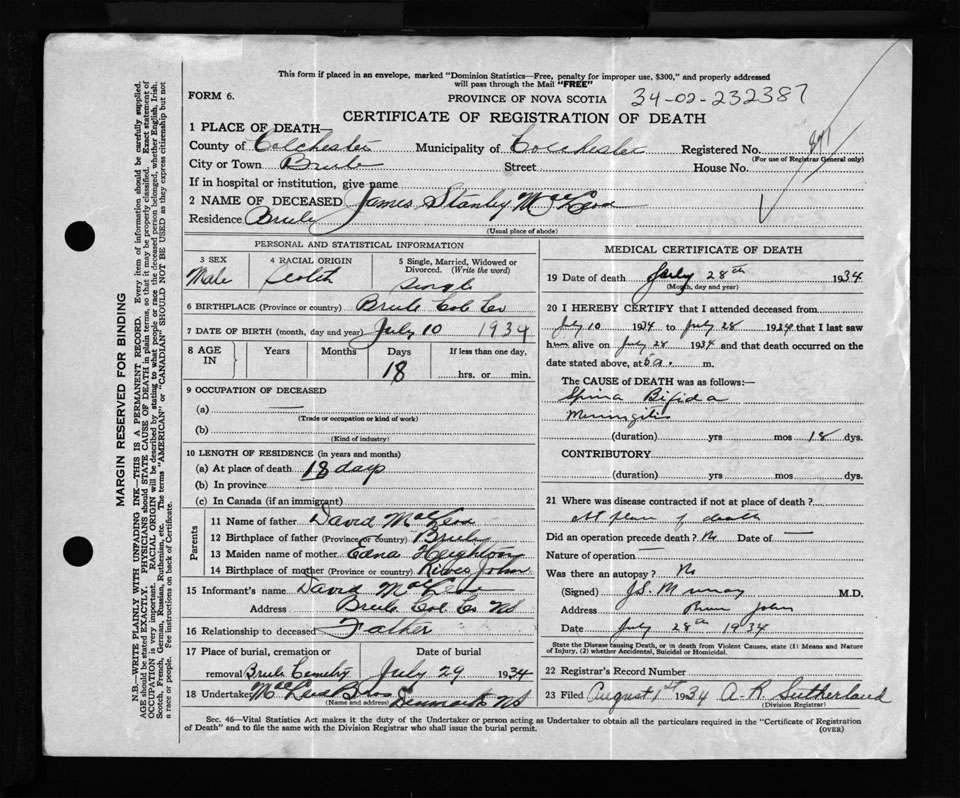 This form if placed in an envelope, marked "Dominion Statistics—Free, penalty for improper use, $300," and properly addressed
will pass through the Mail "FREE"
FORM 6.
PROVINCE OF NOVA SCOTIA
34-02-232387
CERTIFICATE OF REGISTRATION OF DEATH
1 PLACE OF DEATH
County of Colchester Municipality of Colchester Registered No.
(For use of Registrar General only)
City or Town Brule Street House No.
If in hospital or institution, give name
2 NAME OF DECEASED James Stanley MacLeod
Residence Brule
(Usual place of abode)
PERSONAL AND STATISTICAL INFORMATION
3 SEX 4 RACIAL ORIGIN 5 Single, Married, Widowed or Divorced. (Write the word)
Male Scotch Single
6 BIRTHPLACE (Province or country) Brule Col Co
7 DATE OF BIRTH (month, day and year) July 10 1934
8 AGE IN Years Months Days If less than one day,
18 hrs. or min.
9 OCCUPATION OF DECEASED
(a) —
(Trade or occupation or kind of work)
(b)
(Kind of industry)
10 LENGTH OF RESIDENCE (in years and months)
(a) At place of death 18 days
(b) In province
(c) In Canada (if an immigrant)
Parents
11 Name of father David MacLeod
12 Birthplace of father (Province or country) Brule
13 Maiden name of mother Edna Heighton
14 Birthplace of mother (Province or country) River John
15 Informant's name David MacLeod
Address Brule Col Co NS
16 Relationship to deceased Father
17 Place of burial, cremation or
removal Brule Cemetry July 29 1934
18 Undertaker MacLeod Bros Denmark NS
(Name and address)
MEDICAL CERTIFICATE OF DEATH
19 Date of death July 28th 1934
(Month, day and year)
20 I HEREBY CERTIFY that I attended deceased from
July 10 1934 to July 28 1934 that I last saw
him alive on July 28 1934 and that death occurred on the
date stated above, at 5 a. m.
The CAUSE OF DEATH was as follows:—
Spina Bifida
Meningitis
(duration) yrs mos 18 dys.
CONTRIBUTORY
(duration) yrs mos dys.
21 Where was disease contracted if not at place of death?
At place of death
Did an operation precede death? No Date of —
Nature of operation —
Was there an autopsy? No
(Signed) J.S. Murray M.D.
Address River John
Date July 28th 1934
State the Disease causing Death, or in death from Violent Causes, state (1) Means and Nature
of Injury, (2) whether Accidental, Suicidal or Homicidal.
22 Registrar's Record Number
23 Filed August 1st 1934 A. R. Sutherland
(Division Registrar)
Sec. 46—Vital Statistics Act makes it the duty of the Undertaker or person acting as Undertaker to obtain all the particulars required in the "Certificate of Registration
of Death" and to file the same with the Division Registrar who shall issue the burial permit.
(OVER)
MARGIN RESERVED FOR BINDING
N.B.—WRITE PLAINLY WITH UNFADING INK—THIS IS A PERMANENT RECORD. Every item of information should be carefully supplied.
AGE should be stated EXACTLY. PHYSICIANS should STATE CAUSE OF DEATH in plain terms, so that it may be properly classified. Exact statement of
OCCUPATION is very important. RACIAL ORIGIN will be described by stating to what people or race the deceased person belonged, whether English, Irish,
Scotch, French, German, Russian, Ruthenian, etc. The terms "AMERICAN" or "CANADIAN" SHOULD NOT BE USED as they express citizenship but not
a race or people. See instructions on back of Certificate.